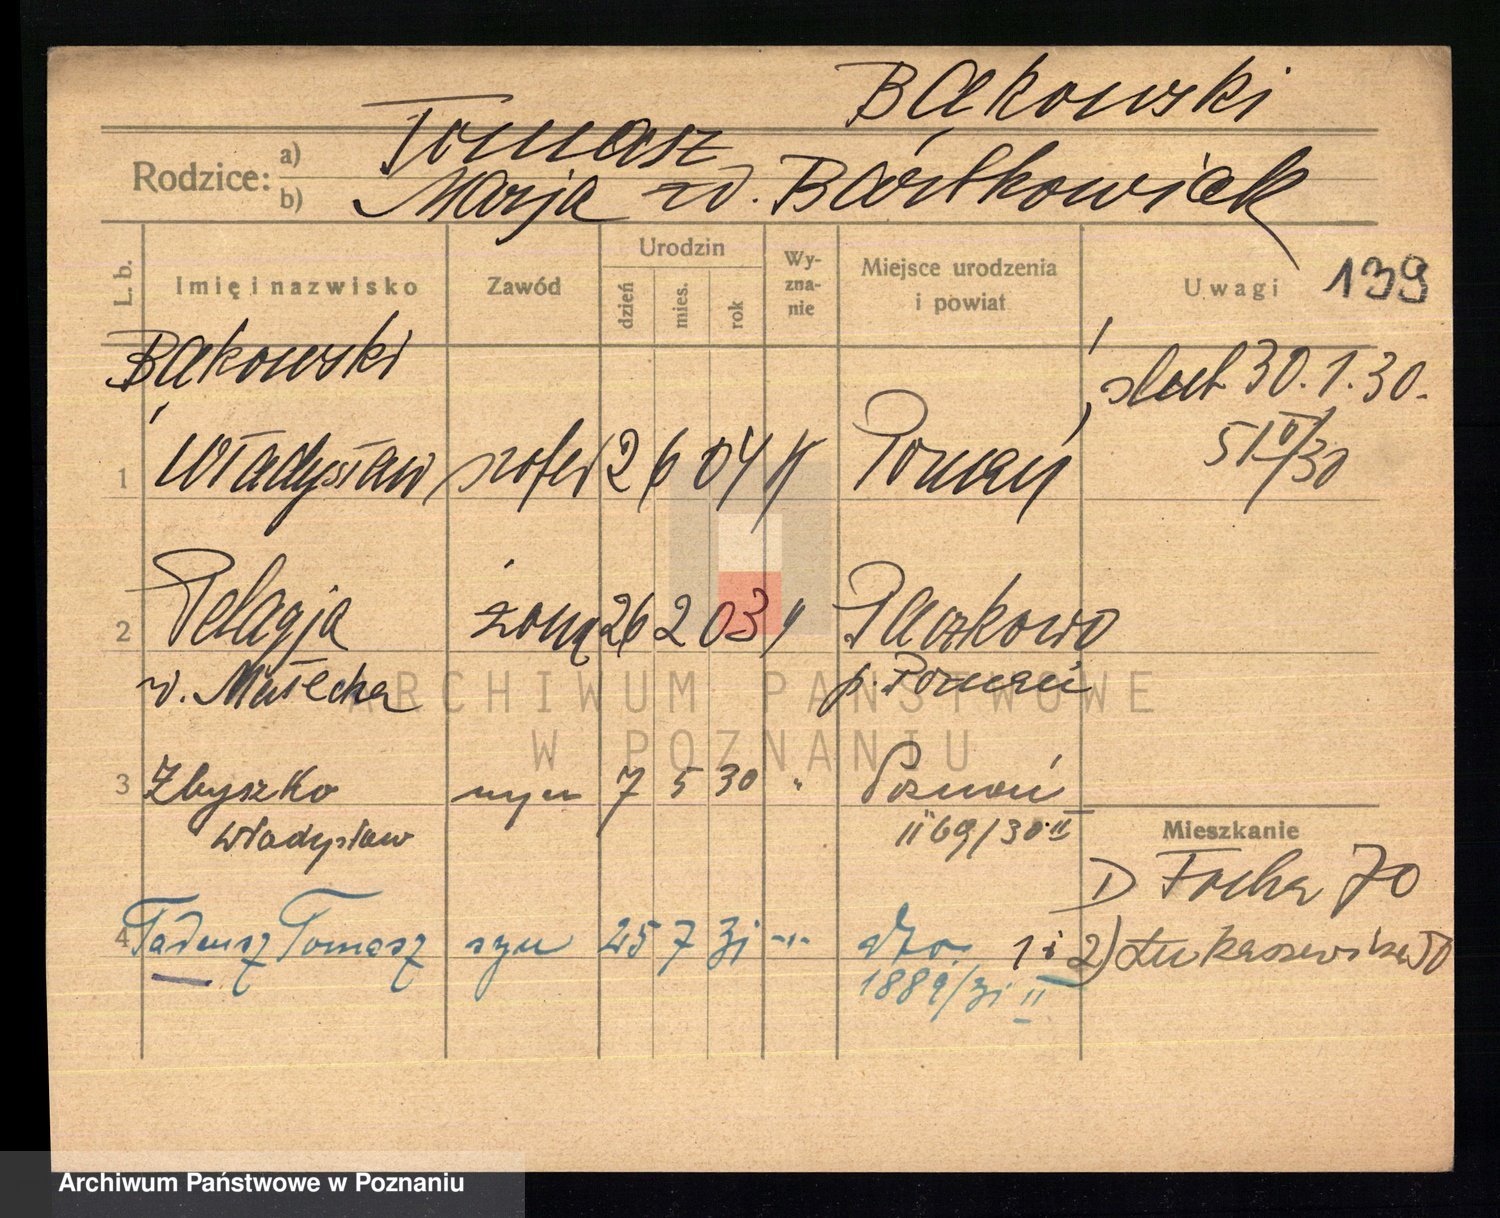 Bąkowski
Rodzice: a) Tomasz
b) Marja z d. Bartkowiak
L. b. Imię i nazwisko Zawód Urodzin dzień mies. rok Wy-zna-nie Miejsce urodzenia i powiat Uwagi 139
Bąkowski ślub 30.1.30.
51 II/30
1 Władysław szofer 12 6 04 K Poznań
2 Pelagja żona 26 2 03 " Placzkowo
z d. Małecka p. Poznań
3 Zbyszko syn 7 5 30 " Poznań
Władysław 1169/30 II
Mieszkanie
1) Focha 70
4 Tadeusz Tomasz syn 25 7 31 -"- dto. 1 i 2) Łukaszewicza 50
1889/31 II
ARCHIWUM PAŃSTWOWE
W POZNANIU
Archiwum Państwowe w Poznaniu